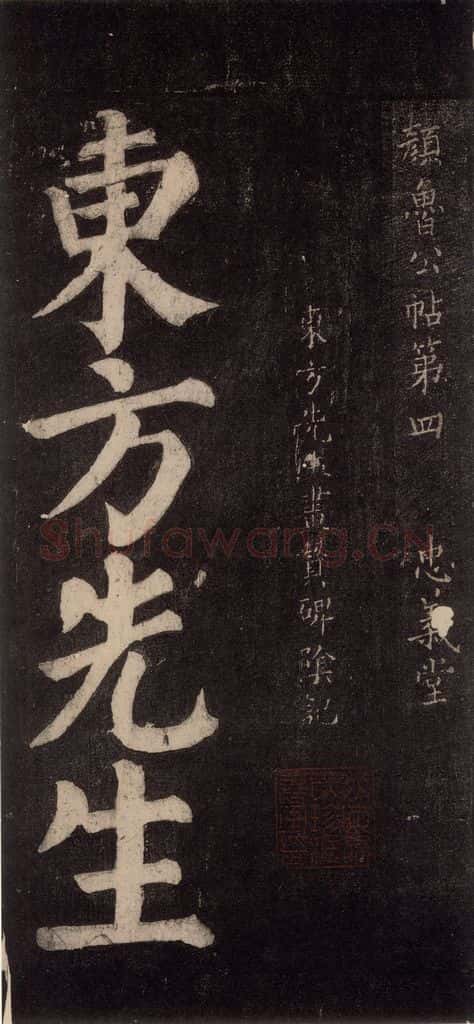 顏魯公帖第四 忠義堂
東方先生畫贊碑陰記
東方先生
Shufawang.CN